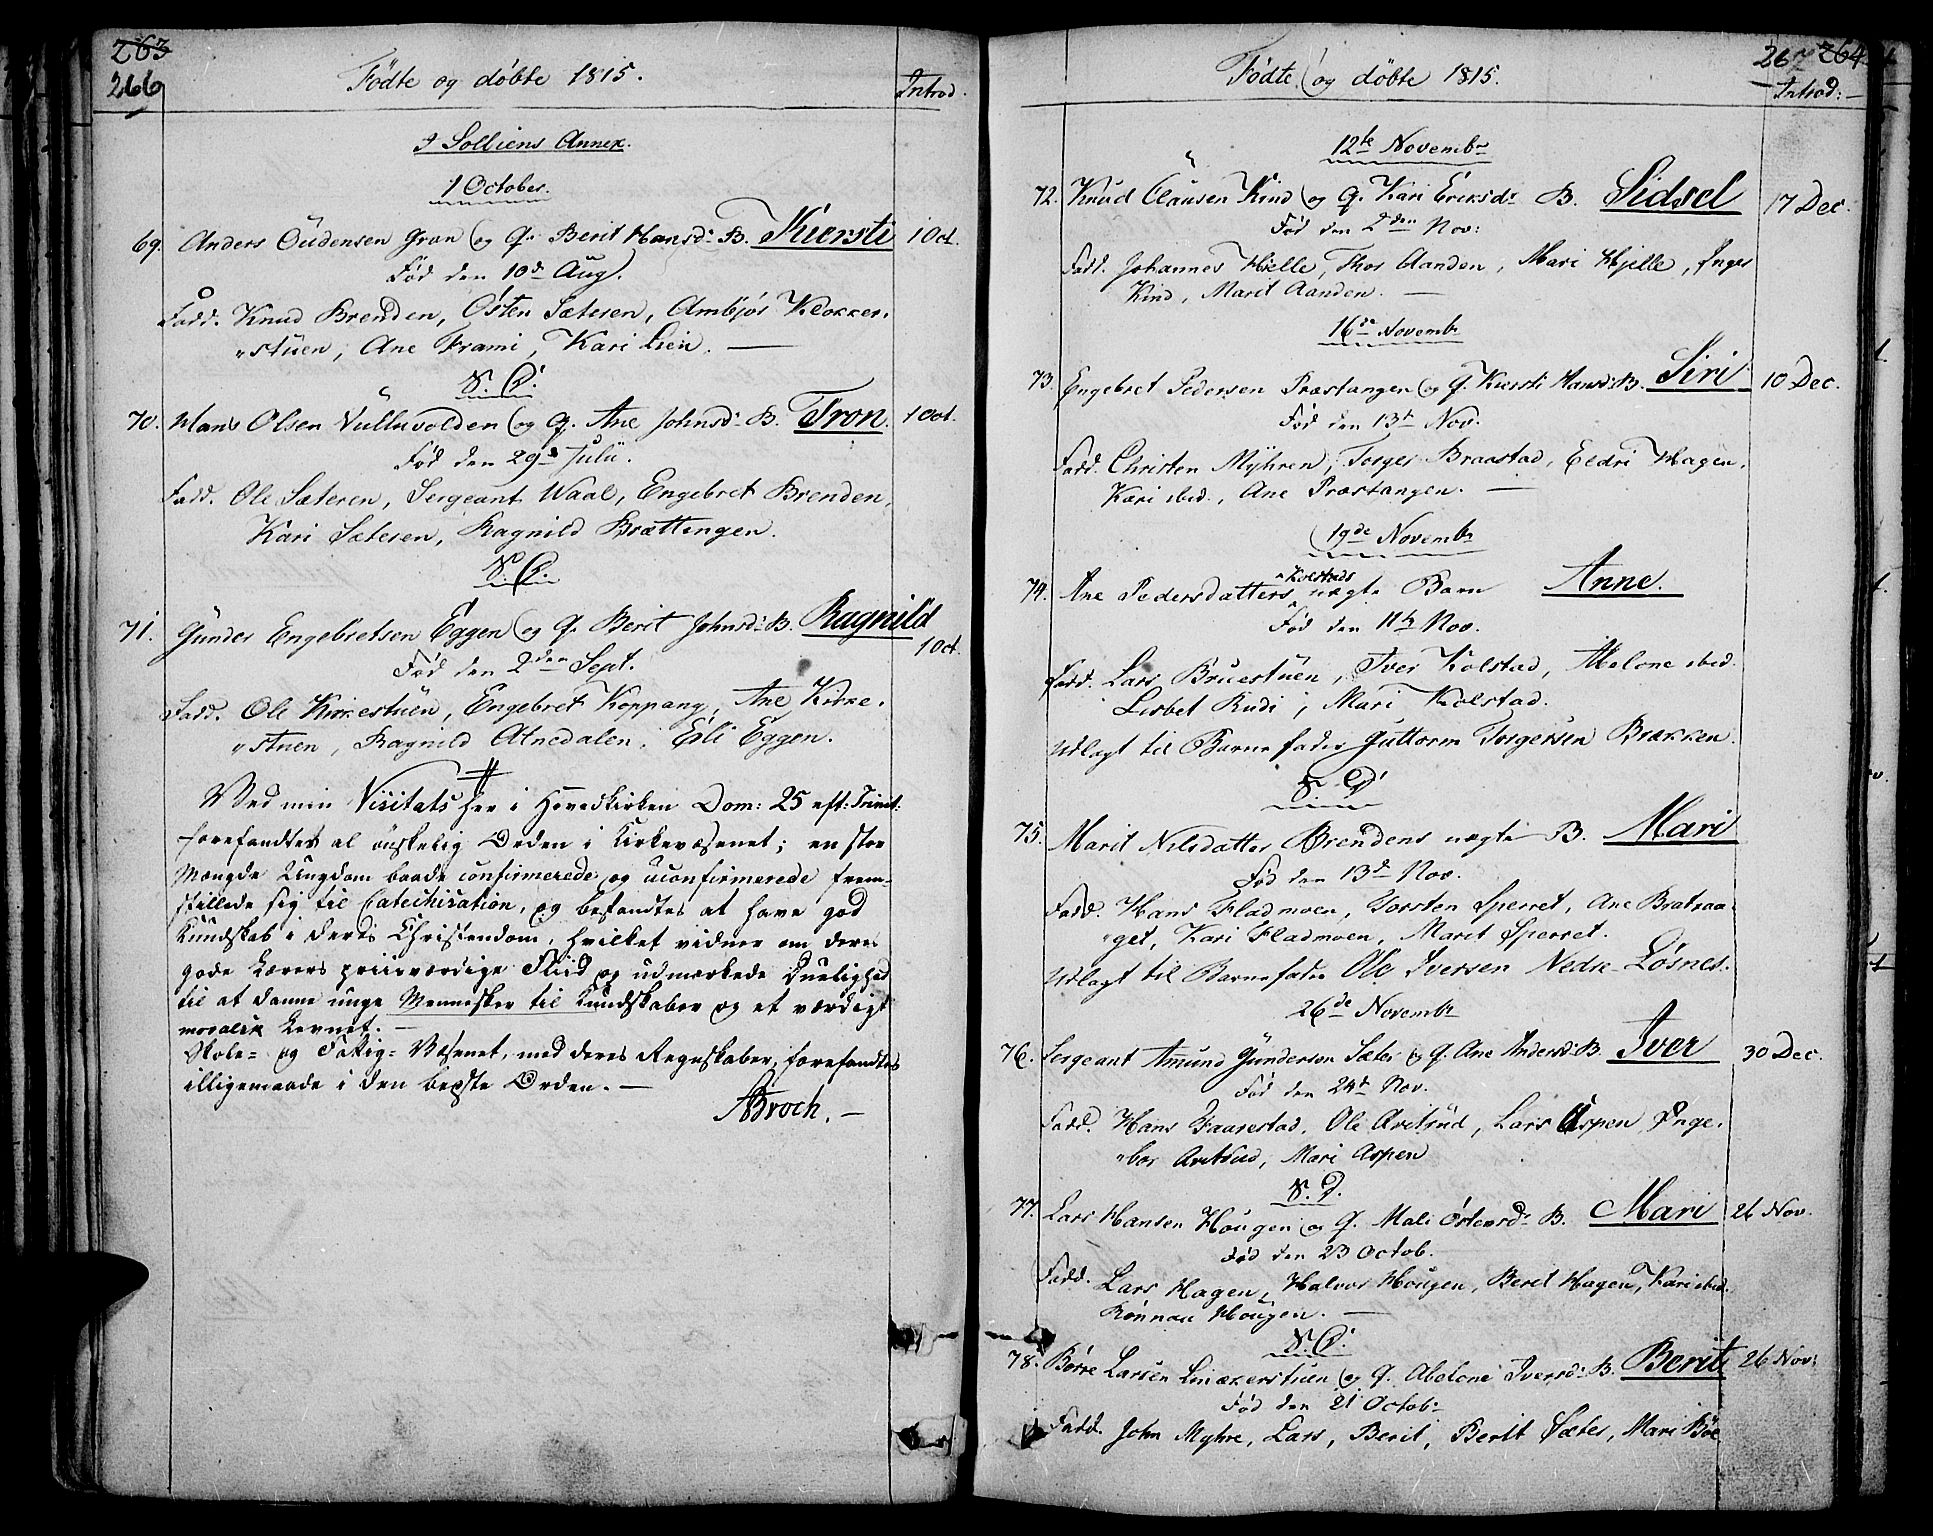 263
266
Födte og döbte 1815.
Introd.
I Solliens Annex.
1 October.
69. Anders Oudensen Gran og Q. Berit Hansd: B. Kiersti 1 Oct.
Fød den 10d Aug.
Fadd. Knud Brenden, Østen Sæteren, Ambjør Klokker-
"stuen, Ane Frami, Kari Lien. —
S. D.
70. Mans Olsen Vulluvolden og Q. Ane Johnsd: B. Tron. 1 Oct.
Fød den 29d Julii.
Fadd. Ole Sæteren, Sergeant Waal, Engebret Brenden,
Kari Sæteren, Ragnild Brættingen.
S. D.
71. Gunder Engebretsen Eggen og Q. Berit Johnsd: B. Ragnild
1 Oct.
Fød den 2den Sept.
Fadd. Ole Kirkestuen, Engebret Koppang, Ane Kirke-
"stuen, Ragnild Atnedalen, Eli Eggen.
Ved min Visitats her i Hovedkirken Dom: 25 eft: Trinit:
forefandtes al önskelig Orden i Kirkevæsenet; en stor
Mængde Ungdom baade confirmerede og uconfirmerede frem-
stillede sig til Catechisation, og befandtes at have god
Kundskab i deres Christendom, hvilket vidner om deres
gode Læreres priisværdige Fliid og udmærkede Duelighed
til at danne unge Mennesker til Kundskaber og et værdigt
moralsk Levnet. —
Skole- og Fattig-Væsenet, med deres Regnskaber, forefandtes
illigemaade i den bedste Orden. —
Broch. —
267 264
Födte og döbte 1815.
Introd: —
12te Novembr
72. Knud Clausen Kind og Q. Kari Eriksdr B. Sidsel 17 Dec.
Fød den 2den Nov:
Fadd. Johannes Hielle, Thor Aanden, Mari Hjelle, Inger
Kind, Marit Aanden. —
16de Novembr
73. Engebret Pedersen Præstangen og Q. Kiersti Hansd: B. Siri 10 Dec.
Fød den 13de Nov.
Fadd. Christen Myhren, Torger Braastad, Eldri Hagen,
Kari ibid., Ane Præstangen. —
19de Novembr
74. Ane Pedersdatters Kolstads uægte Barn Anne.
Fød den 11te Nov.
Fadd. Lars Bruestuen, Iver Kolstad, Abelone ibid.
Lisbet Rudi, Mari Kolstad.
Udlagt til Barnefader Guttorm Torgersen Brækken.
S. D.
75. Marit Nilsdatter Brendens uægte B. Mari
Fød den 13de Nov.
Fadd. Hans Fladmoen, Torsten Sperret, Ane Bratraa-
"get, Kari Fladmoen, Marit Sperret.
Udlagt til Barnefader Ole Iversen Nedre-Løsnes.
26de Novembr
76. Sergeant Amund Gundersen Sæter og Q. Ane Andersd: B. Iver 30 Dec.
Fød den 24de Nov.
Fadd. Hans Faarestad, Ole Avetrud, Lars Aspen, Inge-
"bor Avetrud, Mari Aspen
S. D.
77. Lars Hansen Hougen og Q. Mali Østensd: B. Mari 26 Nov.
Fød den 23 Octob.
Fadd. Lars Hagen, Halvor Hougen, Berit Hagen, Kari ibid.
Rönnau Hougen. —
S. D.
78. Börre Larsen Linækerstuen og Q. Abelone Iversd: B. Berit 26 Nov:
Fød den 21 Octobr
Fadd. John Myhre, Lars, Berit, Berit Sæter, Mari Böe